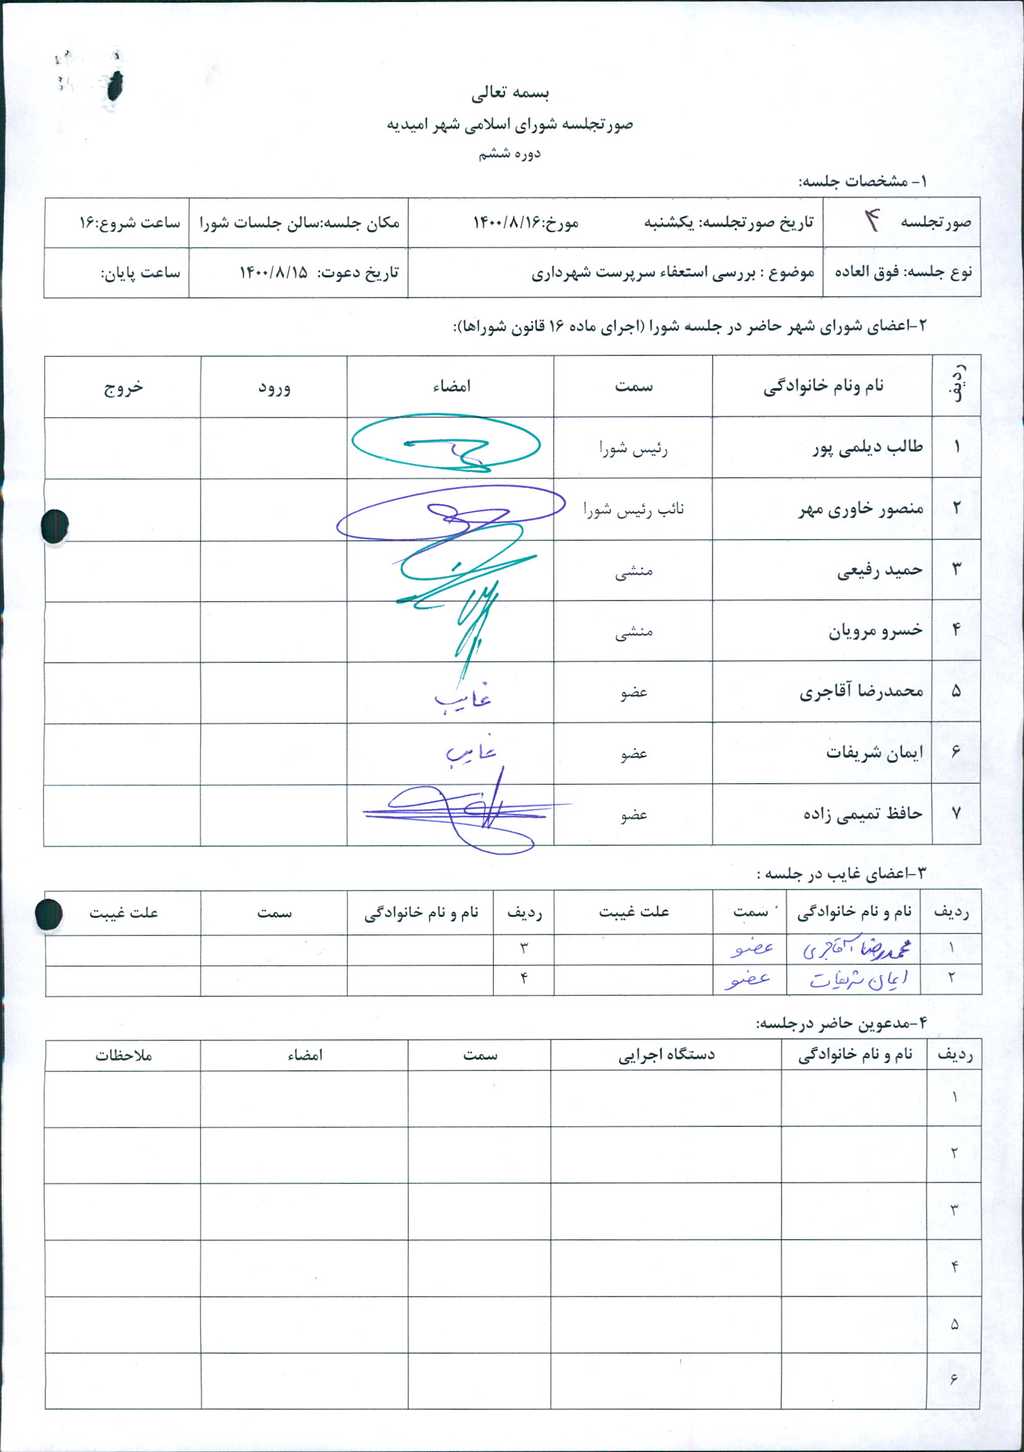 بسمه تعالی
صورتجلسه شورای اسلامی شهر امیدیه
دوره ششم
۱- مشخصات جلسه:
صورتجلسه ۴ تاریخ صورتجلسه: یکشنبه مورخ:۱۴۰۰/۸/۱۶ مکان جلسه:سالن جلسات شورا ساعت شروع:۱۶
نوع جلسه: فوق العاده موضوع : بررسی استعفاء سرپرست شهرداری تاریخ دعوت: ۱۴۰۰/۸/۱۵ ساعت پایان:
۲-اعضای شورای شهر حاضر در جلسه شورا (اجرای ماده ۱۶ قانون شوراها):
ردیف نام ونام خانوادگی سمت امضاء ورود خروج
۱ طالب دیلمی پور رئیس شورا
۲ منصور خاوری مهر نائب رئیس شورا
۳ حمید رفیعی منشی
۴ خسرو مرویان منشی
۵ محمدرضا آقاجری عضو غایب
۶ ایمان شریفات عضو غایب
۷ حافظ تمیمی زاده عضو
۳-اعضای غایب در جلسه :
ردیف نام و نام خانوادگی سمت علت غیبت ردیف نام و نام خانوادگی سمت علت غیبت
۱ محمدرضا آقاجری عضو ۳
۲ ایمان شریفات عضو ۴
۴-مدعوین حاضر درجلسه:
ردیف نام و نام خانوادگی دستگاه اجرایی سمت امضاء ملاحظات
۱
۲
۳
۴
۵
۶